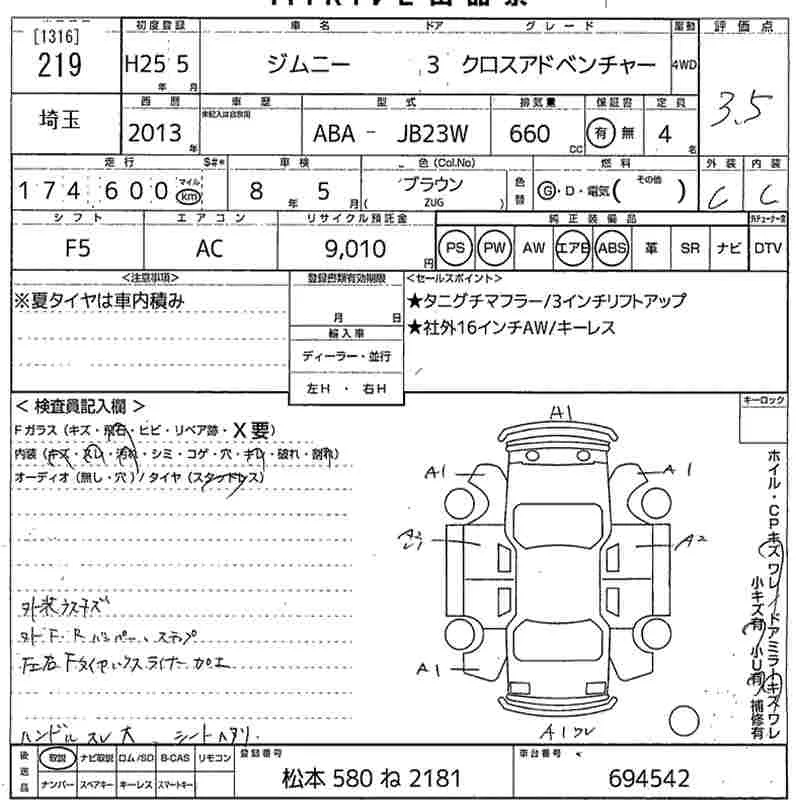 [1316]
219
埼玉
初度登録
H25 5
年 月
車名 ドア グレード
ジムニー 3 クロスアドベンチャー
駆動
4WD
評価点
3.5
西暦
2013 年
車歴
未記入は自家用
型式
ABA - JB23W
排気量
660 CC
保証書
有 無
定員
4 名
走行 S#*
174600 マイル km
車検
8 年 5 月
色(Col.No)
ブラウン
( ZUG )
色替
燃料
G・D・電気( その他 )
外装 内装
C C
シフト
F5
エアコン
AC
リサイクル預託金
9,010 円
純正装備品
PS PW AW エアB ABS 革 SR ナビ
DTV
<注意事項>
※夏タイヤは車内積み
登録書類有効期限
月 日
輸入車
ディーラー・並行
左H ・ 右H
<セールスポイント>
★タニグチマフラー/3インチリフトアップ
★社外16インチAW/キーレス
<検査員記入欄>
Fガラス(キズ・飛石・ヒビ・リペア跡・X要)
内装(キズ・スレ・汚れ・シミ・コゲ・穴・キレ・破れ・割れ)
オーディオ(無し・穴)/タイヤ(スタッドレス)
外F.Rバンパー、ステップ
左右Fタイヤハウスライナー加工
ハンドルスレ大 シートヘタリ.
キーロック
A1
A1 A1
A2
A2
A1
A1ワレ
ホイル・CPキズワレ/ドアミラーキズワレ
小キズ有 小U有 補修有
後送品
取説 ナビ取説 ロム/SD B-CAS リモコン
ナンバー スペアキー キーレス スマートキー
登録番号
松本 580 ね 2181
車台番号
694542